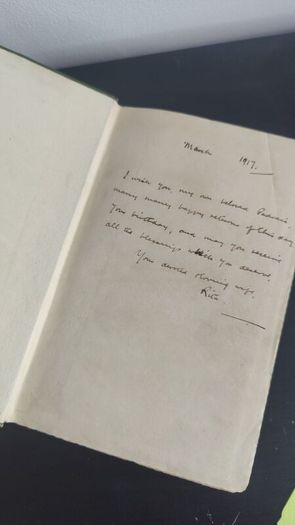 March 1917.
I wish you, my own beloved
many many happy returns of this day,
Your birthday, and may you receive
all the blessings which you deserve.
Your devoted & loving wife,
Rita